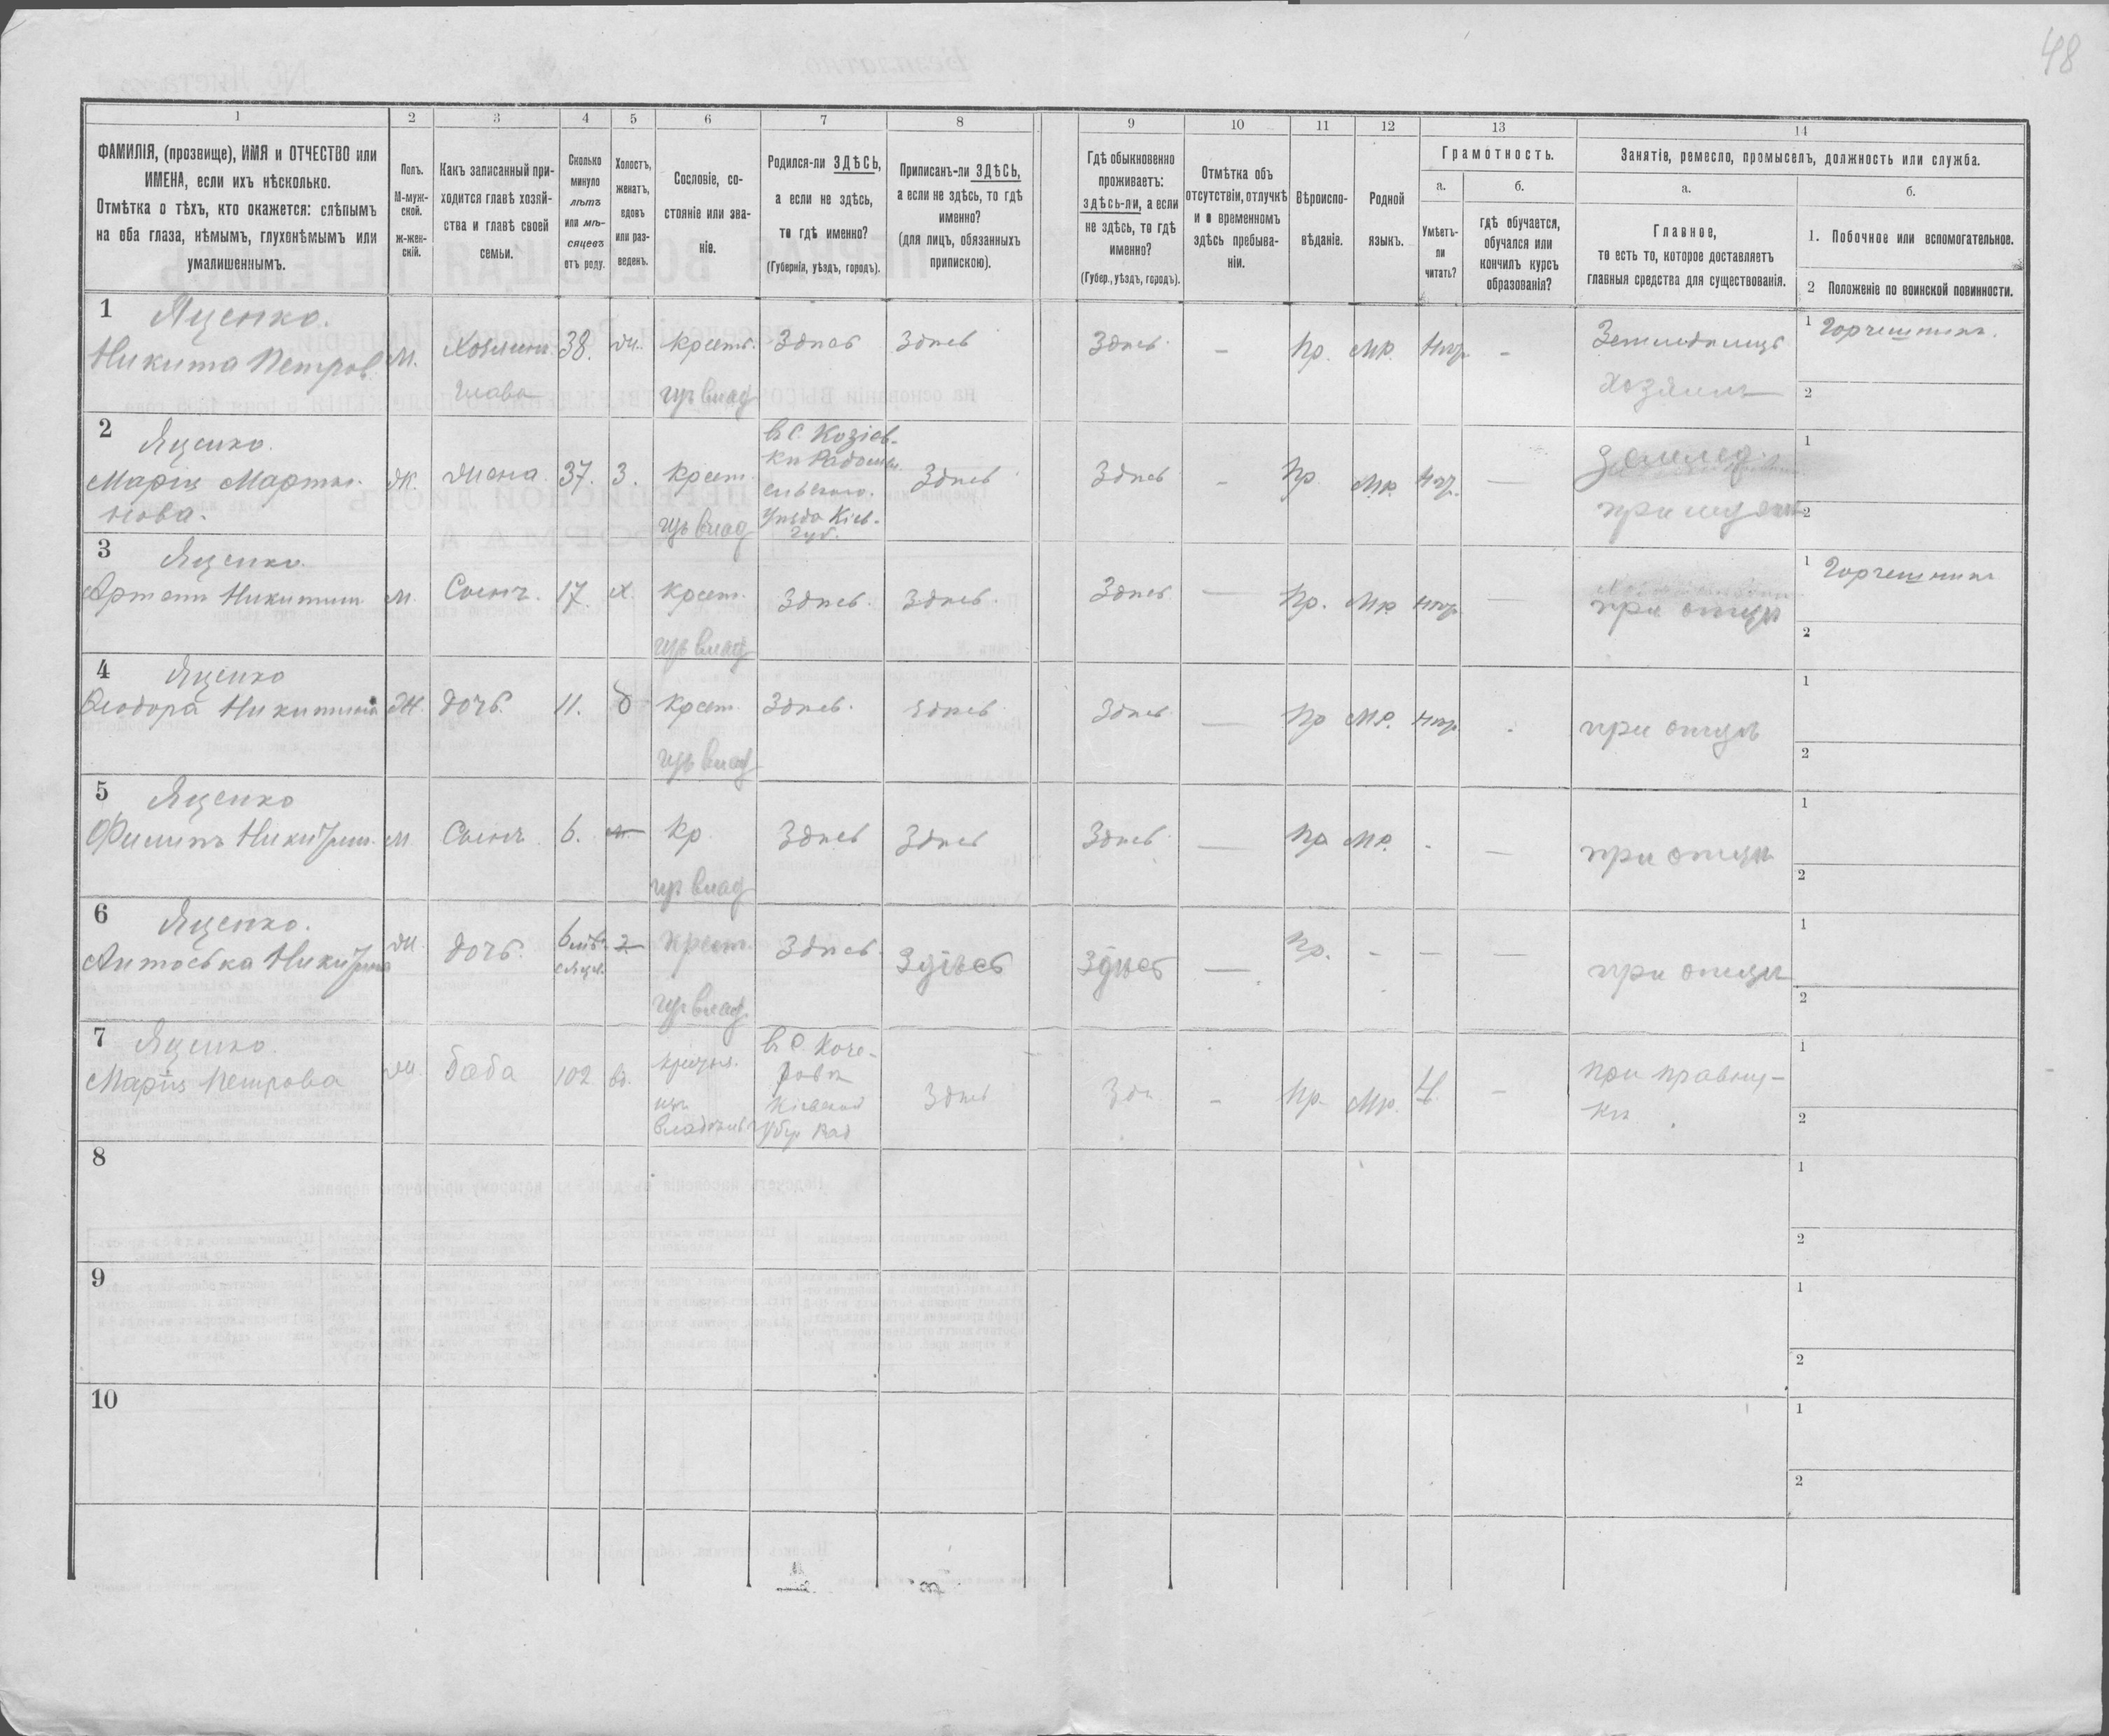 48
1 2 3 4 5 6 7 8 9 10 11 12 13 14
ФАМИЛІЯ, (прозвище), ИМЯ и ОТЧЕСТВО или
ИМЕНА, если ихъ нѣсколько.
Отмѣтка о тѣхъ, кто окажется: слѣпымъ
на оба глаза, нѣмымъ, глухонѣмымъ или
умалишеннымъ.
Полъ.
М-муж-
ской.
ж-жен-
скій.
Какъ записанный при-
ходится главѣ хозяй-
ства и главѣ своей
семьи.
Сколько
минуло
лѣтъ
или мѣ-
сяцевъ
отъ роду.
Холостъ,
женатъ,
вдовъ
или раз-
веденъ.
Сословіе, со-
стояніе или зва-
ніе.
Родился-ли ЗДѢСЬ,
а если не здѣсь,
то гдѣ именно?
(Губернія, уѣздъ, городъ).
Приписанъ-ли ЗДѢСЬ,
а если не здѣсь, то гдѣ
именно?
(для лицъ, обязанныхъ
припискою).
Гдѣ обыкновенно
проживаетъ:
здѣсь-ли, а если
не здѣсь, то гдѣ
именно?
(Губер., уѣздъ, городъ).
Отмѣтка объ
отсутствіи, отлучкѣ
и о временномъ
здѣсь пребыва-
ніи.
Вѣроиспо-
вѣданіе.
Родной
языкъ.
Грамотность.
а.
Умѣетъ-
ли
читать?
б.
гдѣ обучается,
обучался или
кончилъ курсъ
образованія?
Занятіе, ремесло, промыселъ, должность или служба.
а.
Главное,
то есть то, которое доставляетъ
главныя средства для существованія.
б.
1. Побочное или вспомогательное.
2 Положеніе по воинской повинности.
1 Яценко.
Никита Петров. М. Хозяинъ 38. ж. крест. Здѣсь Здѣсь Здѣсь - пр. мр. нгр. - Земледѣлецъ 1 Горчешникъ.
глава хозяинъ 2
2 Яценко.
Марія Марты-
нова. ж. жена 37. З. крест. Здѣсь Здѣсь - пр. мр. нгр. — землед. 1
вс. Козіев-
ки Радомы-
сльского.
Уѣзда Кіев.
Губ.
при мужѣ 2
3 Яценко.
Артемъ Никитинъ м. Сынъ. 17. х. крест. Здѣсь. Здѣсь. Здѣсь — пр. мр нгр. — при отцѣ 1 Горчешникъ
2
4 Яценко
Ѳеодора Никитина ж. дочь. 11. д крест. Здѣсь. Здѣсь Здѣсь — пр мр. нгр. . при отцѣ 1
2
5 Яценко
Филипъ Никитин. м Сынъ. 6. кр. Здѣсь Здѣсь Здѣсь — пр мр. - — при отцѣ 1
2
6 Яценко.
Антоська Никитина ж. дочь. 6 мѣ-
сяцев. крест. Здѣсь. Здѣсь Здѣсь — пр. - — — при отцѣ 1
2
7 Яценко
Марія Петрова ж. баба 102 вд. Здѣсь - пр. мр. Н. - при правну-
кѣ 1
вс Коче-
ровѣ
Кіевской
губер Рад
2
8 1
2
9 1
2
10 1
2